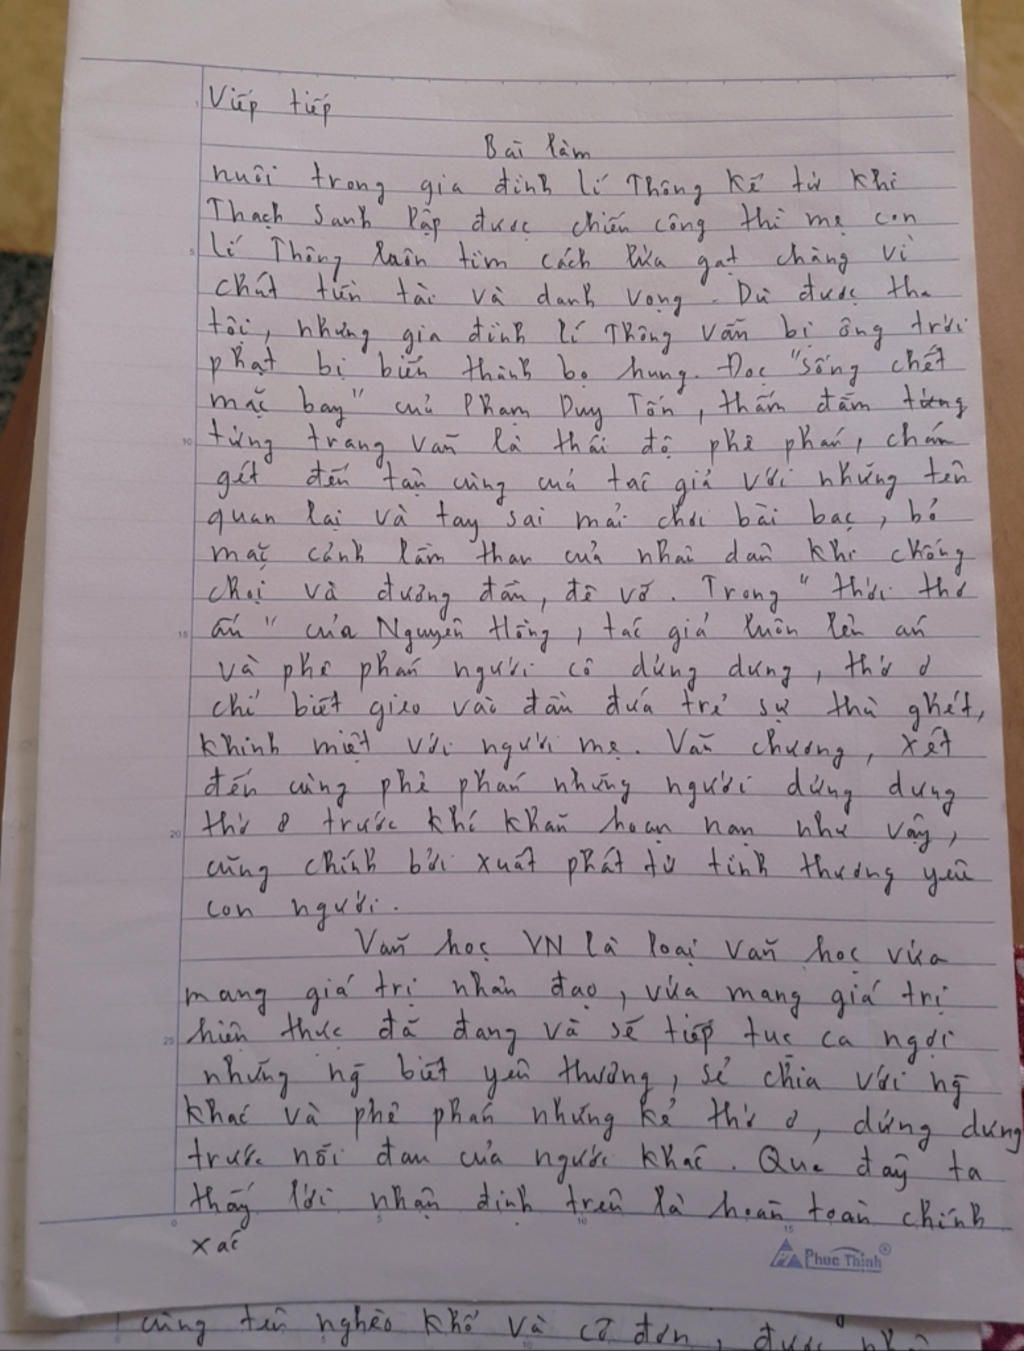 Viếp tiếp
Bài làm
nuôi trong gia đình lí Thông kể từ khi
Thạch Sanh lập được chiến công thì mẹ con
lí Thông luôn tìm cách lừa gạt chàng vì
chút tiền tài và danh vọng. Dù được tha
tội, nhưng gia đình lí Thông vẫn bị ông trời
phạt bị biến thành bọ hung. Đọc "sống chết
mặc bay" của Phạm Duy Tốn, thấm đẫm
từng trang văn là thái độ phê phán, chán
gét đến tận cùng của tác giả với những tên
quan lại và tay sai mải chơi bài bạc, bỏ
mặc cảnh lầm than của nhân dân khi chống
chọi và đương đầu, đê vỡ. Trong "thời thơ
ấu" của Nguyên Hồng, tác giả luôn lên án
và phê phán người cô dửng dưng, thờ ơ
chỉ biết gieo vào đầu đứa trẻ sự thù ghét,
khinh miệt với người mẹ. Văn chương, xét
đến cùng phê phán những người dửng dưng
thờ ơ trước khó khăn hoạn nạn như vậy,
cũng chính bởi xuất phát từ tình thương yêu
con người.
Văn học VN là loại văn học vừa
mang giá trị nhân đạo, vừa mang giá trị
hiện thực đã đang và sẽ tiếp tục ca ngợi
những ng̃ biết yêu thương, sẻ chia với ng̃
khác và phê phán những kẻ thờ ơ, dửng dưng
trước nỗi đau của người khác. Qua đây ta
thấy lời nhận định trên là hoàn toàn chính
xác
Phuc Thinh®
cùng tên nghèo khổ và cô đơn, được